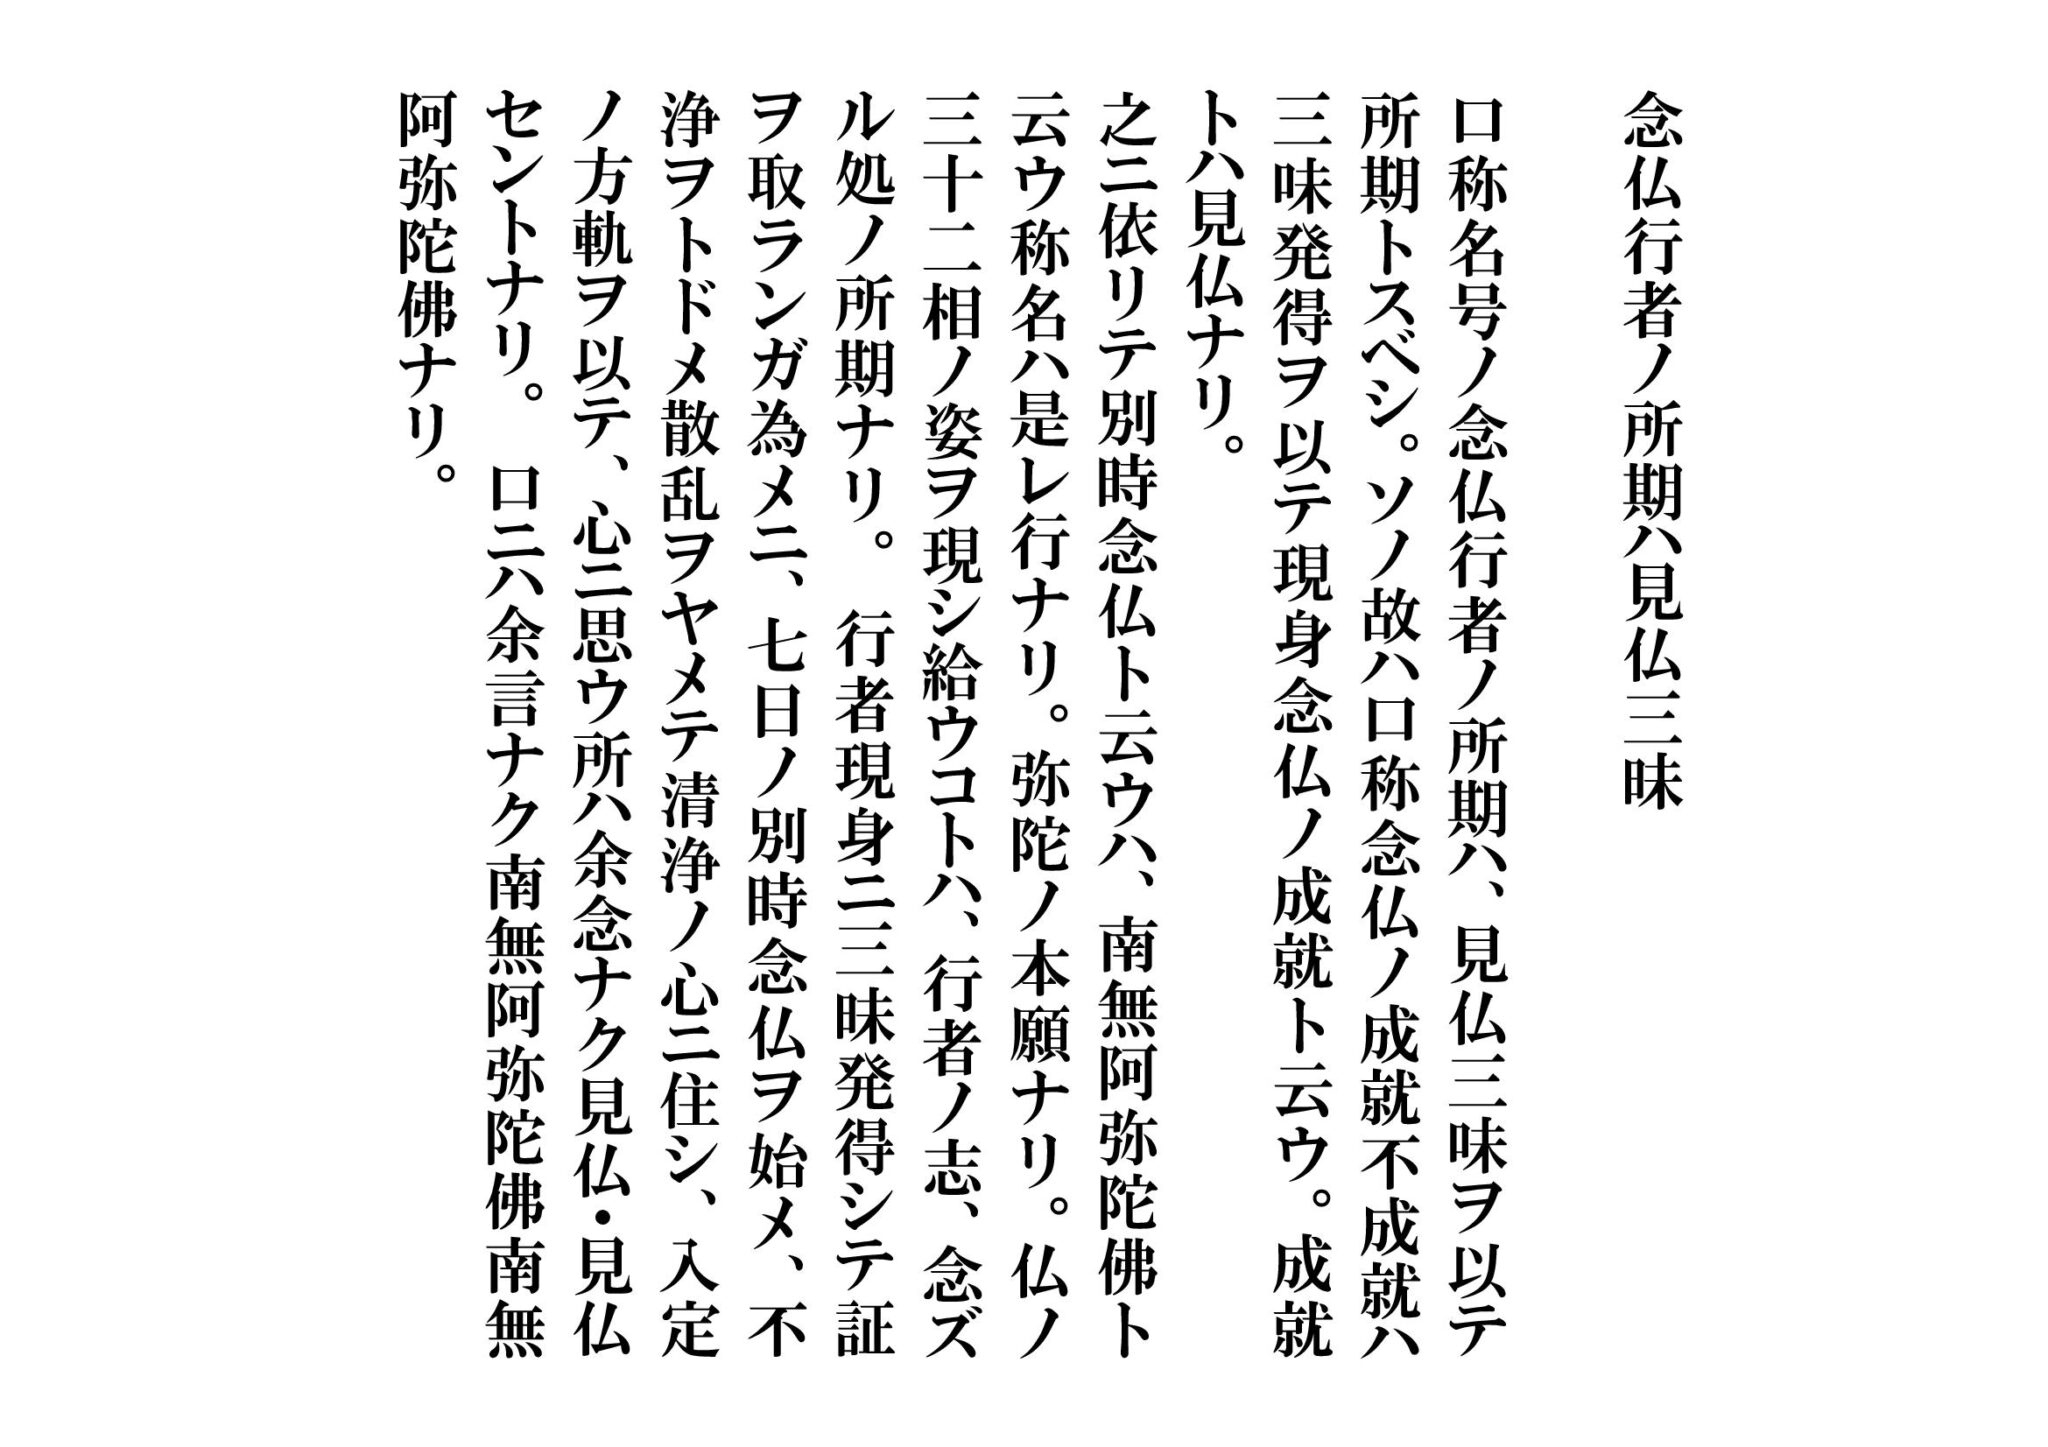 念仏行者ノ所期ハ見仏三昧
口称名号ノ念仏行者ノ所期ハ、見仏三昧ヲ以テ
所期トスベシ。ソノ故ハ口称念仏ノ成就不成就ハ
三昧発得ヲ以テ現身念仏ノ成就ト云ウ。成就
トハ見仏ナリ。
之ニ依リテ別時念仏ト云ウハ、南無阿弥陀佛ト
云ウ称名ハ是レ行ナリ。弥陀ノ本願ナリ。仏ノ
三十二相ノ姿ヲ現シ給ウコトハ、行者ノ志、念ズ
ル処ノ所期ナリ。　行者現身ニ三昧発得シテ証
ヲ取ランガ為メニ、七日ノ別時念仏ヲ始メ、不
浄ヲトドメ散乱ヲヤメテ清浄ノ心ニ住シ、入定
ノ方軌ヲ以テ、心ニ思ウ所ハ余念ナク見仏・見仏
セントナリ。　口ニハ余言ナク南無阿弥陀佛南無
阿弥陀佛ナリ。